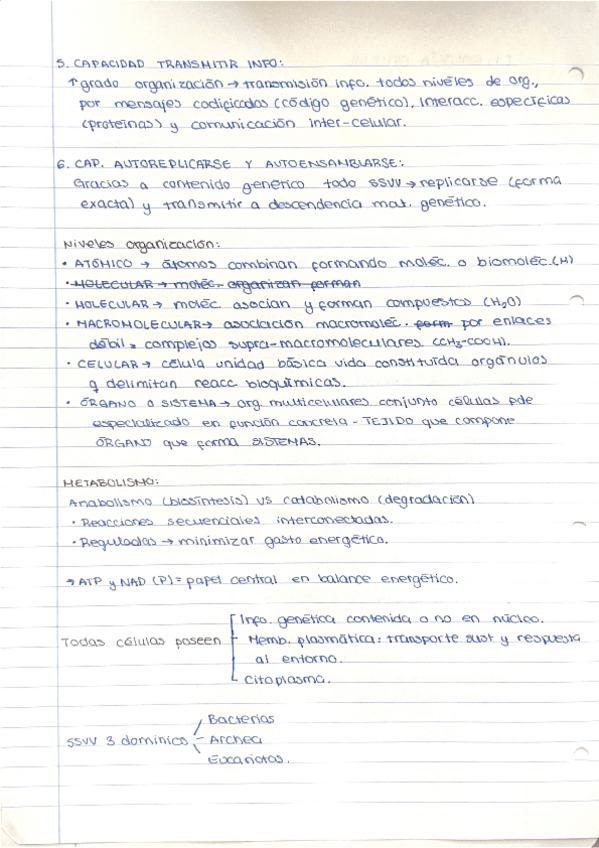 5. CAPACIDAD TRANSMITIR INFO:
↑ grado organización → transmisión info. todos niveles de org.,
por mensajes codificados (código genético), interacc. específicas
(proteínas) y comunicación inter-celular.
6. CAP. AUTOREPLICARSE Y AUTOENSAMBLARSE:
Gracias a contenido genético todo SSVV → replicarse (forma
exacta) y transmitir a descendencia mat. genético.
Niveles organización:
• ATÓMICO → átomos combinan formando moléc. o biomoléc. (H)
• MOLECULAR → moléc. organizan forman
• MOLECULAR → moléc. asocian y forman compuestos (H₂O)
• MACROMOLECULAR → asociación macromoléc. form por enlaces
débil = complejos supra-macromoleculares (CH₃-COOH).
• CELULAR → célula unidad básica vida constituída orgánulos
q delimitan reacc. bioquímicas.
• ÓRGANO O SISTEMA → org. multicelulares conjunto células pde
especializado en función concreta - TEJIDO que compone
ÓRGANO que forma SISTEMAS.
METABOLISMO:
Anabolismo (biosíntesis) vs catabolismo (degradación)
• Reacciones secuenciales interconectadas.
• Reguladas → minimizar gasto energético.
→ ATP y NAD (P) = papel central en balance energético.
Info. genética contenida o no en núcleo.
Todas células poseen Memb. plasmática: transporte sust y respuesta
al entorno.
Citoplasma.
Bacterias
SSVV 3 dominios Archea
Eucariotas.